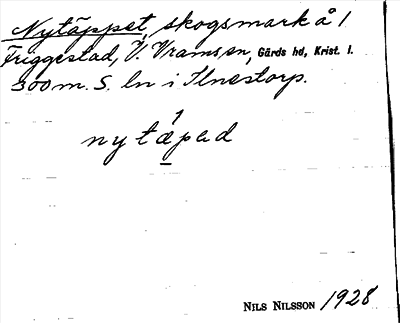 Nytäppet, skogsmark å 1
Friggestad, V. Vramsen, Gärds hd, Krist. l.
300 m. S. ln i Ilnestorp.
1
nytæpad
NILS NILSSON 1928